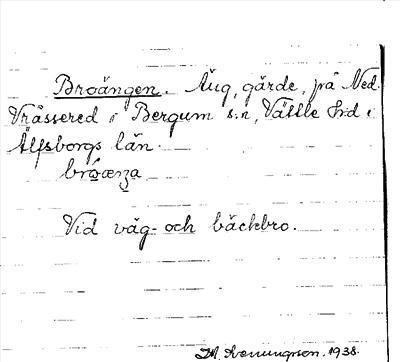 Broängen. Äng, gärde, på Ned.
Vråssered i Bergum s:n, Vättle H:d i
Älfsborgs län.
bróœŋa
Vid väg- och bäckbro.
1938.